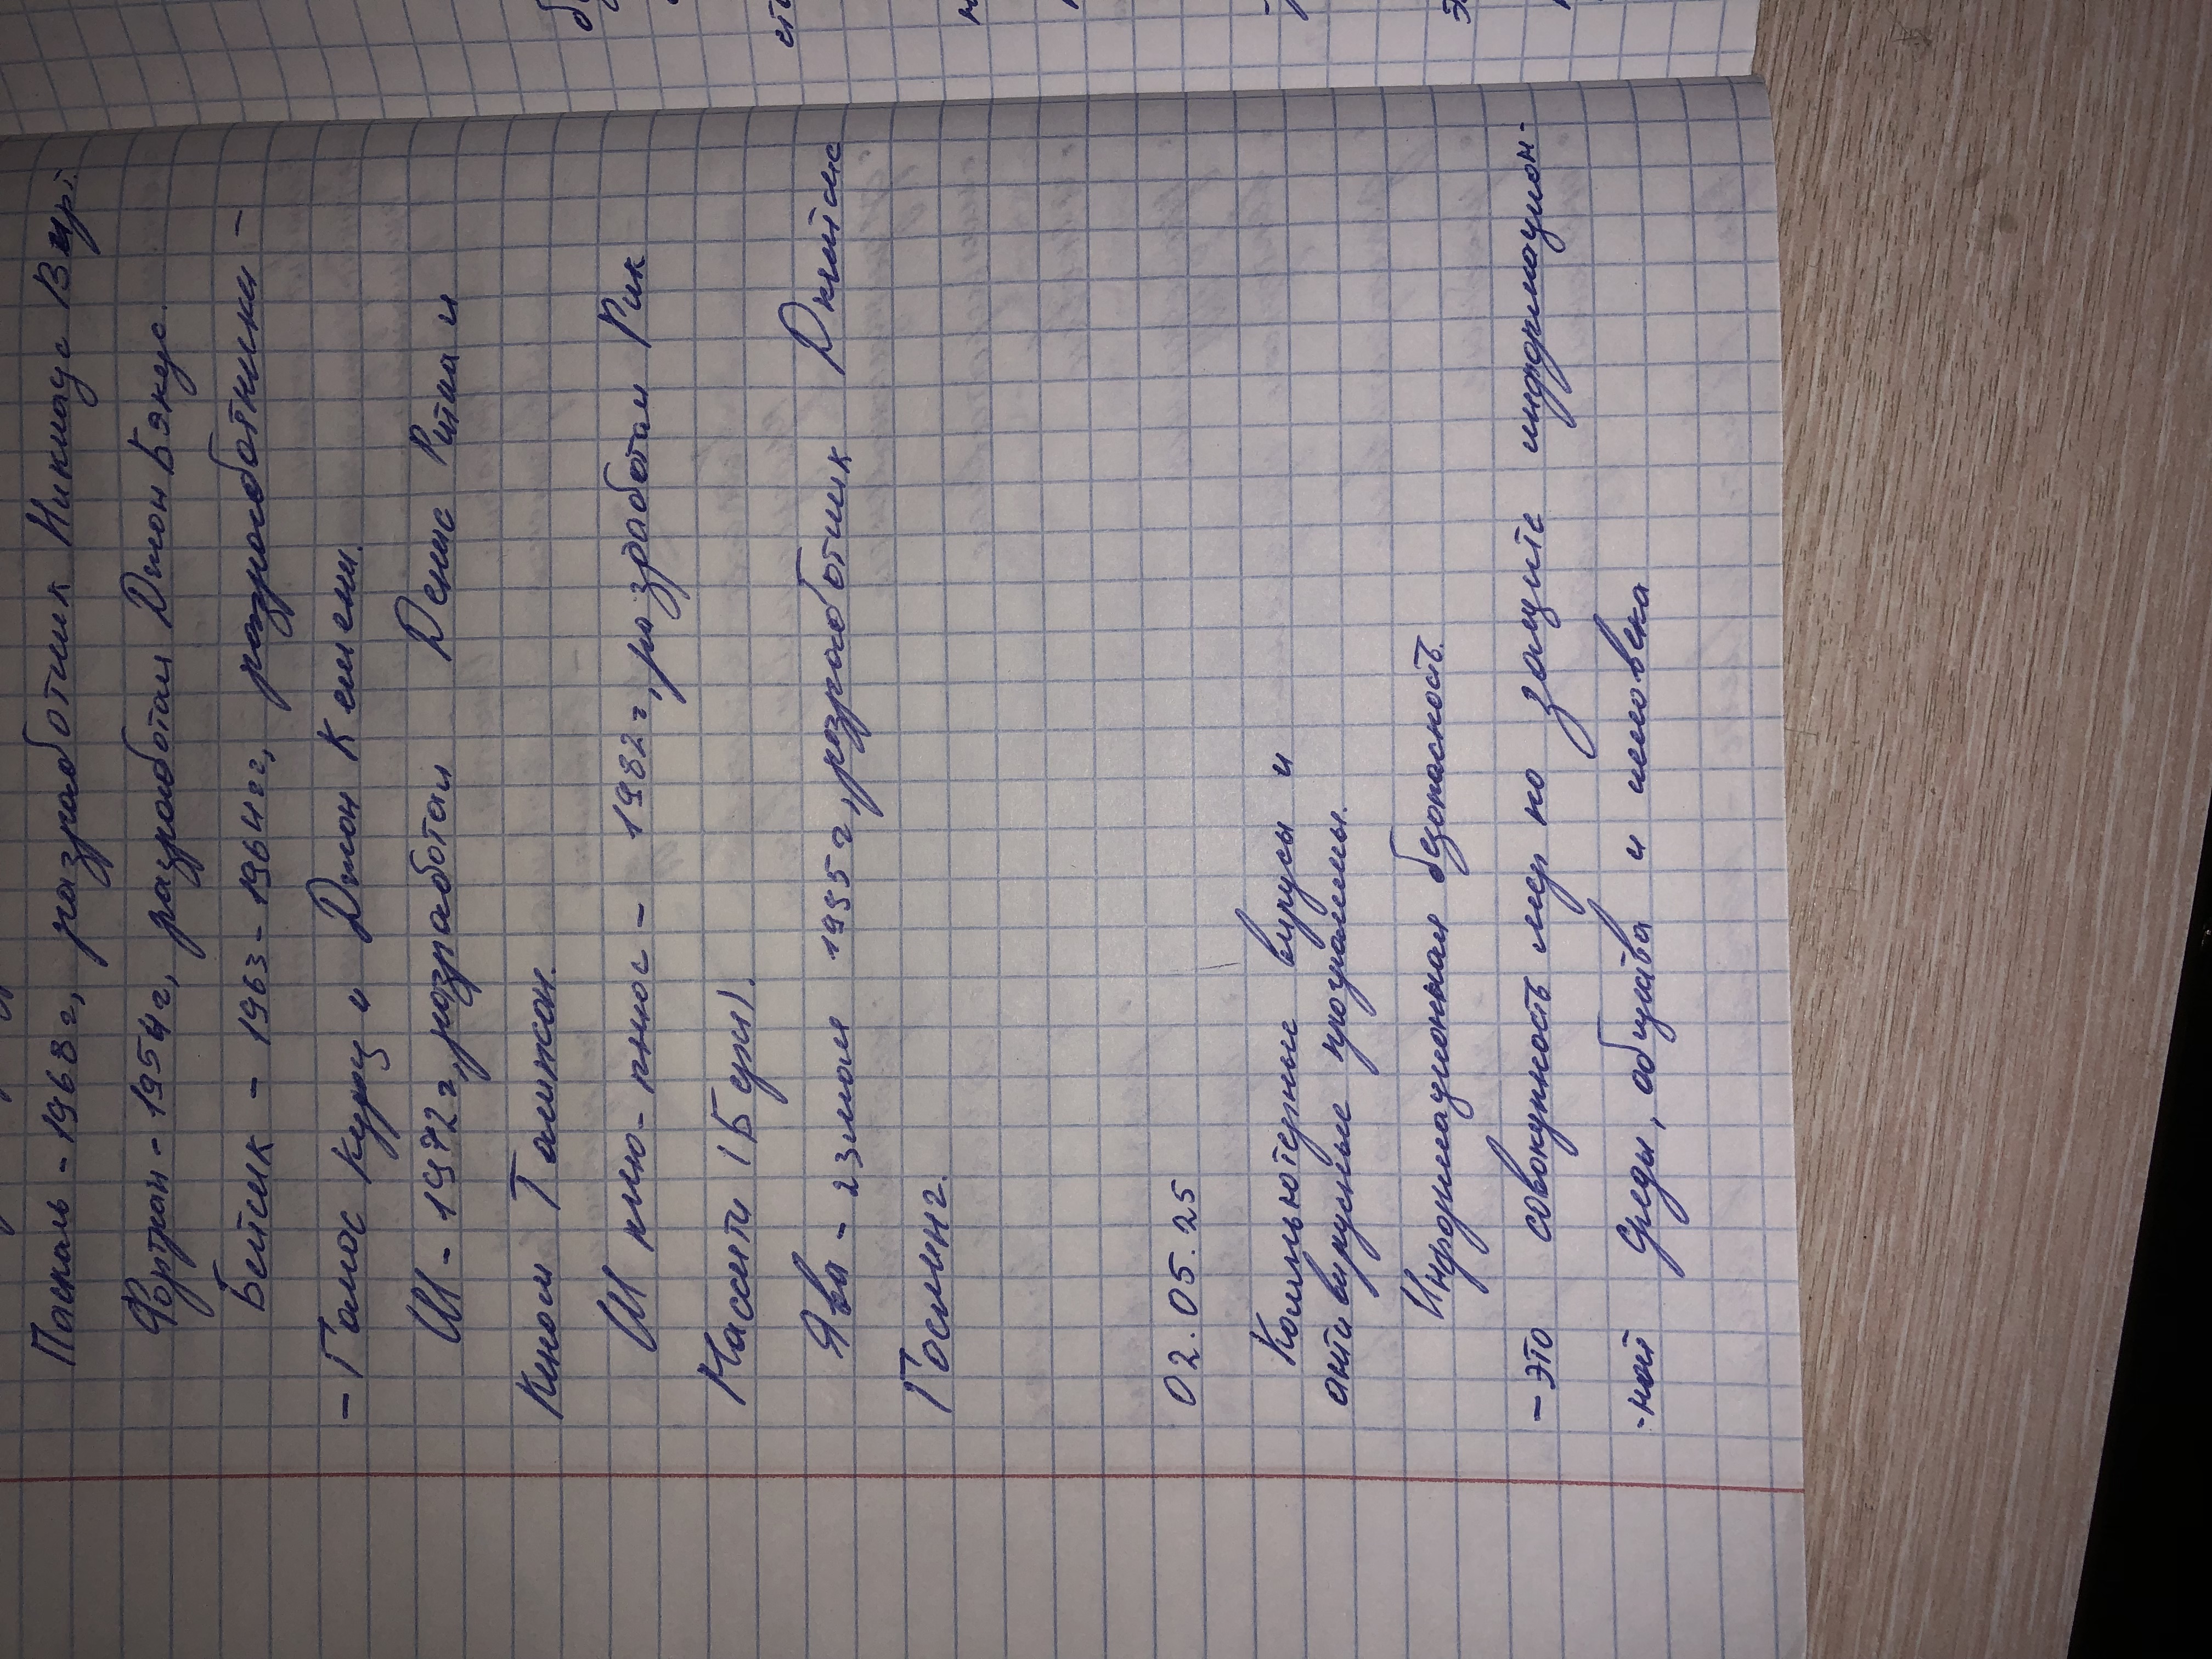 Паскаль - 1968 г, разработчик Никлаус Вирт.
Фортран - 1954 г, разработал Джон Бэкус.
Бейсик - 1963 - 1964 гг, разработчики -
- Томас Курц и Джон Кемени.
СИ - 1972 г, разработал Денис Ритчи и
Кеном Томпсон.
СИ плюс - плюс - 1982 г, разработал Рик
Масити (Бучч).
Ява - 23 мая 1995 г, разработчик Джеймс
Гослинг.
02.05.25
Компьютерные вирусы и
антивирусные программы.
Информационная безопасность.
- это совокупность мер по защите информацион-
-ной среды, общества и человека